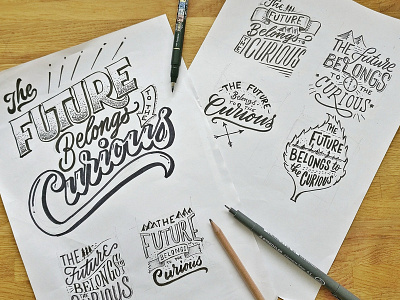 The
FUTURE
Belongs
TO THE
Curious
THE
Future
BELONGS
TO THE
CURIOUS
THE
FUTURE
BELONGS
TO THE
Curious
THE
FUTURE
Belongs
TO THE
CURIOUS
THE Future
BELONGS
TO THE
CURIOUS
THE FUTURE
Belongs
TO THE
Curious
THE
FUTURE
BELONGS to
the
CURIOUS